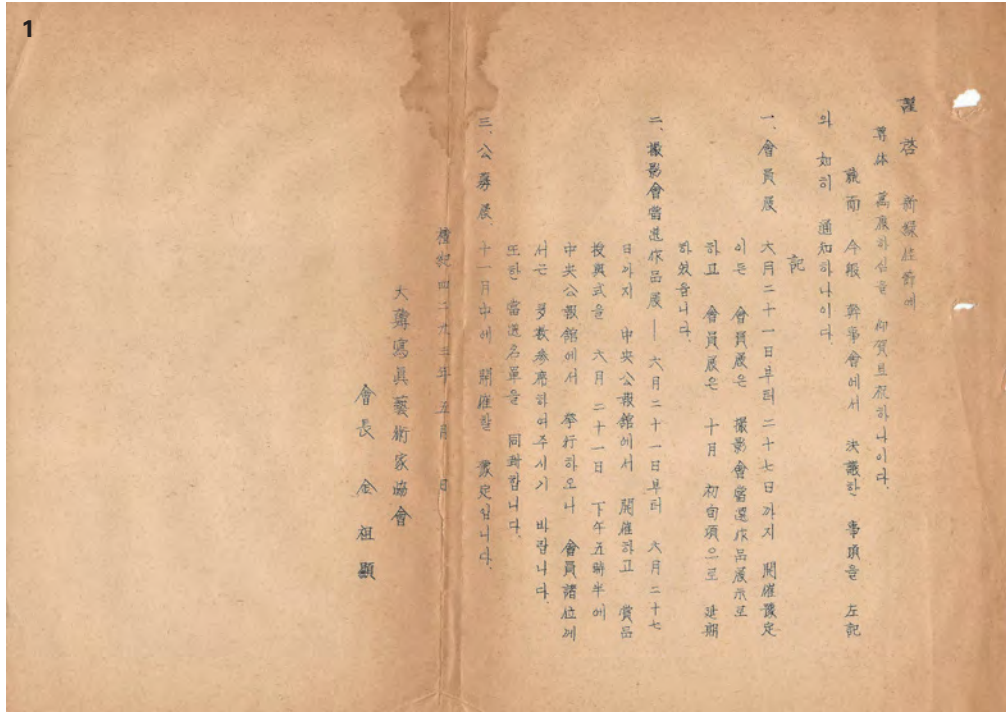 1
謹啓 新綠佳節에
尊体 萬康하심을 仰賀且祝하나이다.
就而 今般 幹事會에서 決議한 事項을 左記
와 如히 通知하나이다.
記
一、會員展 六月二十一日부터 二十七日까지 開催豫定
이든 會員展은 撮影會當選作品展示로
하고 會員展은 十月 初旬頃으로 延期
하였읍니다.
二、撮影會當選作品展 — 六月二十一日부터 六月二十七
日까지 中央公報館에서 開催하고 賞品
授與式을 六月二十一日 下午五時半에
中央公報館에서 擧行하오니 會員諸位께
서는 多數参席하여주시기 바랍니다.
또한 當選名單을 同封합니다.
三、公募展、十一月中에 開催할 豫定입니다.
檀紀四二九三年 五月 日
大韓寫眞藝術家協會
會長 金祖顯